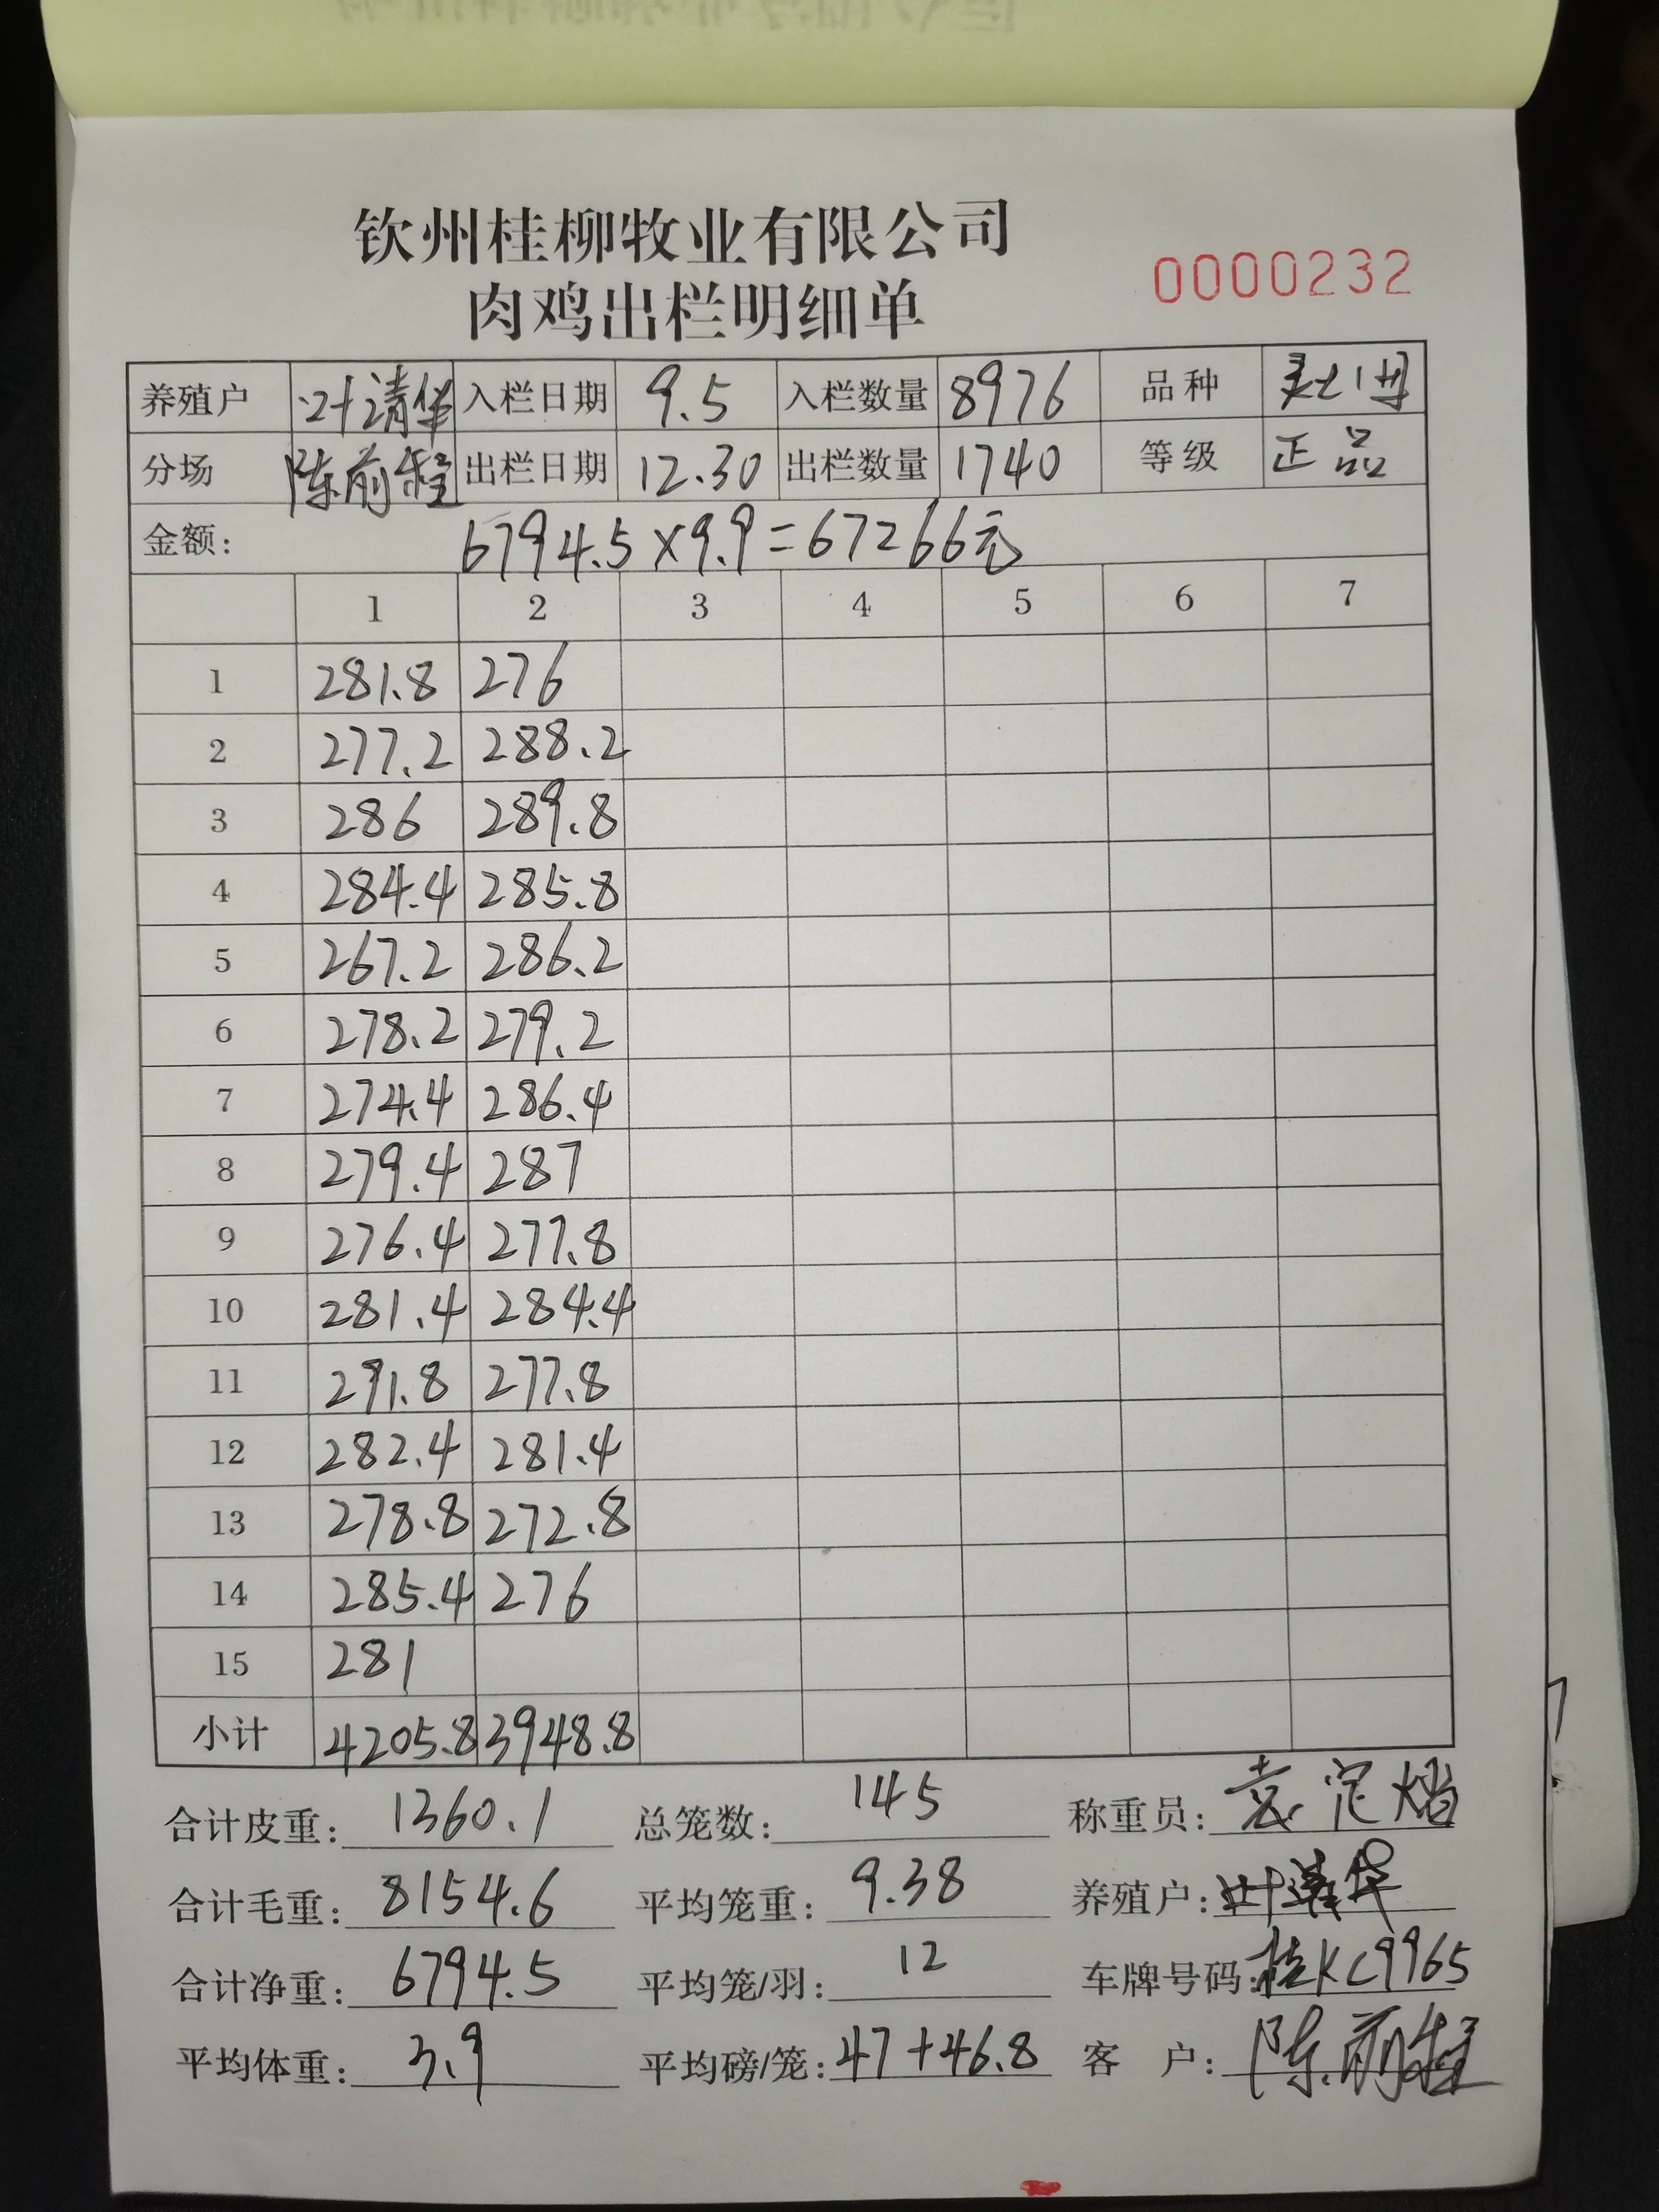 钦州桂柳牧业有限公司
肉鸡出栏明细单
0000232
养殖户 叶清华 入栏日期 9.5 入栏数量 8976 品种
分场 陈前程 出栏日期 12.30 出栏数量 1740 等级 正品
金额: 6794.5×9.9=67266元
1 2 3 4 5 6 7
1 281.8 276
2 277.2 288.2
3 286 289.8
4 284.4 285.8
5 267.2 286.2
6 278.2 279.2
7 274.4 286.4
8 279.4 287
9 276.4 277.8
10 281.4 284.4
11 291.8 277.8
12 282.4 281.4
13 278.8 272.8
14 285.4 276
15 281
小计 4205.8 3948.8
合计皮重: 1360.1 总笼数: 145 称重员: 袁定
合计毛重: 8154.6 平均笼重: 9.38 养殖户: 叶清华
合计净重: 6794.5 平均笼/羽: 12 车牌号码: 桂KC9965
平均体重: 3.9 平均磅/笼: 47+46.8 客 户: 陈前程